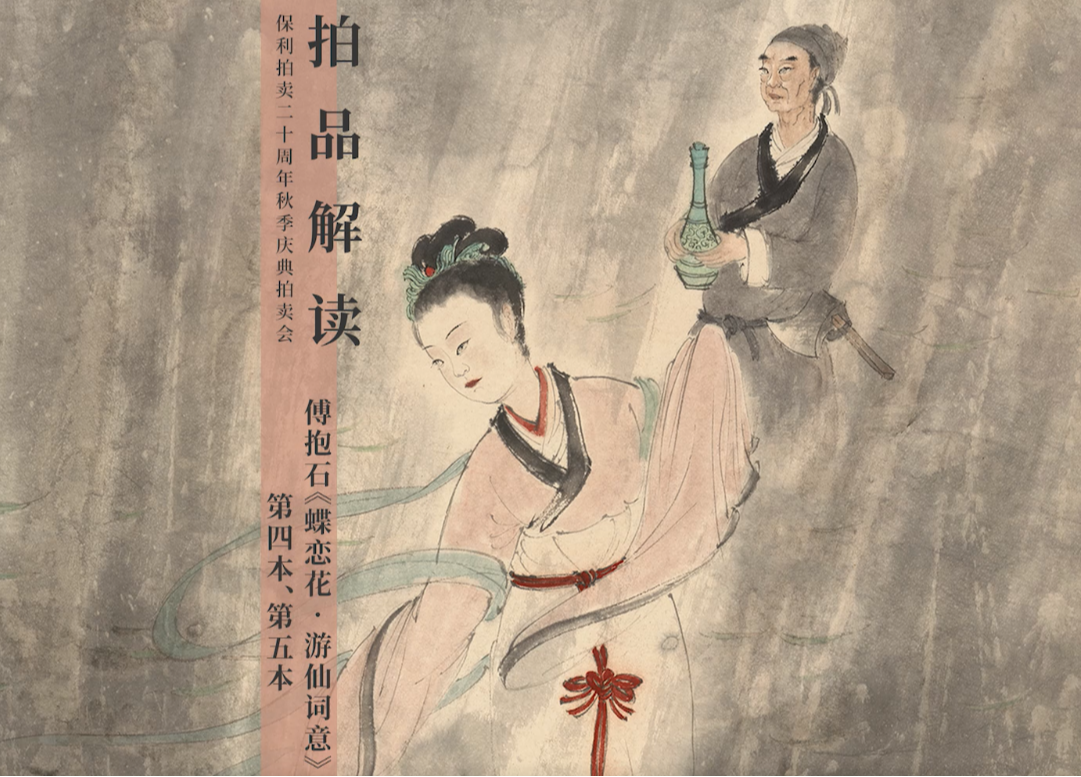 拍品解读
保利拍卖二十周年秋季庆典拍卖会
傅抱石《蝶恋花·游仙词意》
第四本、第五本